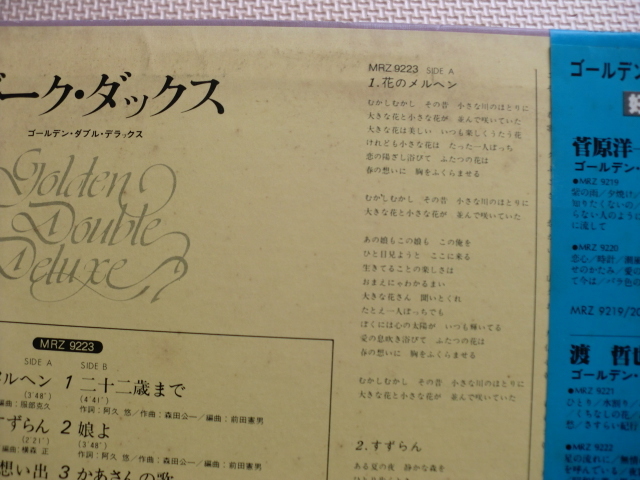 ーク・ダックス
ゴールデン・ダブル・デラックス
Golden
Double
Deluxe
MRZ 9223
SIDE A
SIDE B
メルヘン
(3'48")
編曲:服部克久
1 二十二歳まで
(4'41")
作詞:阿久 悠/作曲:森田公一/編曲:前田憲男
すずらん
(2'21")
編曲:横森 正
2 娘よ
(3'48")
作詞:阿久 悠/作曲:森田公一/編曲:前田憲男
想い出
3 かあさんの歌
MRZ 9223 SIDE A
1.花のメルヘン
むかしむかし その昔 小さな川のほとりに
大きな花と小さな花が 並んで咲いていた
大きな花は美しい いつも楽しくうたう花
けれども小さな花は たった一人ぼっち
恋の陽ざし浴びて ふたつの花は
春の想いに 胸をふくらませる
むかしむかし その昔 小さな川のほとりに
大きな花と小さな花が 並んで咲いていた
あの娘もこの娘も この俺を
ひと目見ようと ここに来る
生きてることの楽しさは
おまえにゃわかるまい
大きな花さん 聞いとくれ
たとえ一人ぼっちでも
ぼくには心の太陽が いつも輝いてる
愛の息吹き浴びて ふたつの花は
春の想いに 胸をふくらませる
むかしむかし その昔 小さな川のほとりに
大きな花と小さな花が 並んで咲いていた
2.すずらん
ある夏の夜 静かな森を
ゴールデン
菅原洋一
ゴールデン・
●MRZ 9219
知りたくないの/
らない人のように
に流して
●MRZ 9220
恋心/時計/
せのかたみ/愛の
て今は/バラ色の
MRZ 9219/20
渡 哲也
ゴールデン・
●MRZ 9221
ひとり/水割り/
/くちなしの花/
愁/さすらい紀行
●MRZ 9222
星の流れに/無情
を呼んでいる/